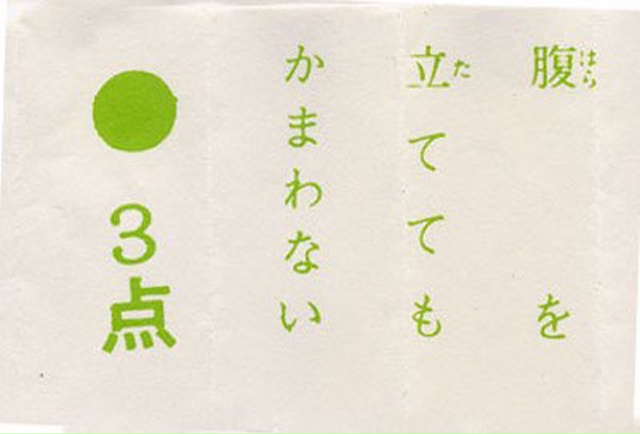 腹を
立てても
かまわない
●3点